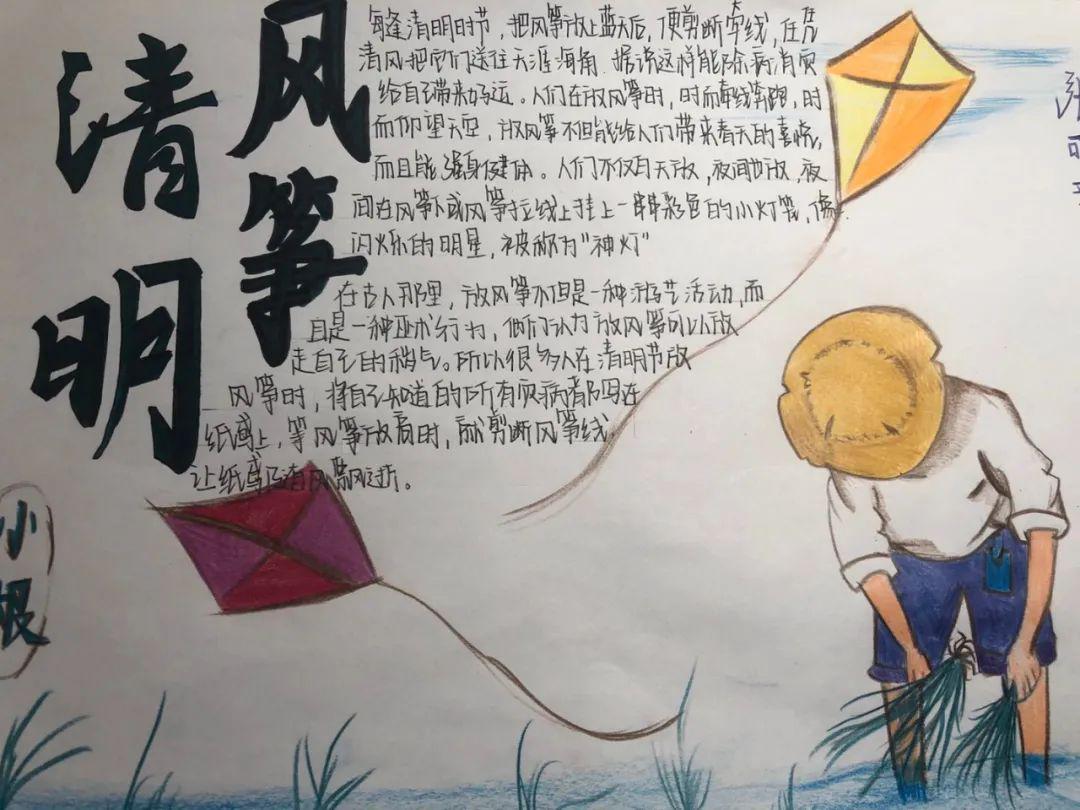 清明
风筝
每逢清明时节，把风筝放上蓝天后，便剪断牵线，任凭
清风把它们送往天涯海角，据说这样能除病消灾
给自己带来好运。人们在放风筝时，时而牵线奔跑，时
而仰望天空，放风筝不但能给人们带来春天的喜悦，
而且能强身健体。人们不仅白天放，夜间也放，夜
间在风筝下或风筝拉线上挂上一串串彩色的小灯笼，像
闪烁的明星，被称为“神灯”
在古人那里，放风筝不但是一种游艺活动，而
且是一种巫术行为，他们认为放风筝可以放
走自己的秽气。所以很多人在清明节放
风筝时，将自己知道的所有灾病都写在
纸鸢上，等风筝放高时，就剪断风筝线，
让纸鸢随清风飘逝。
小